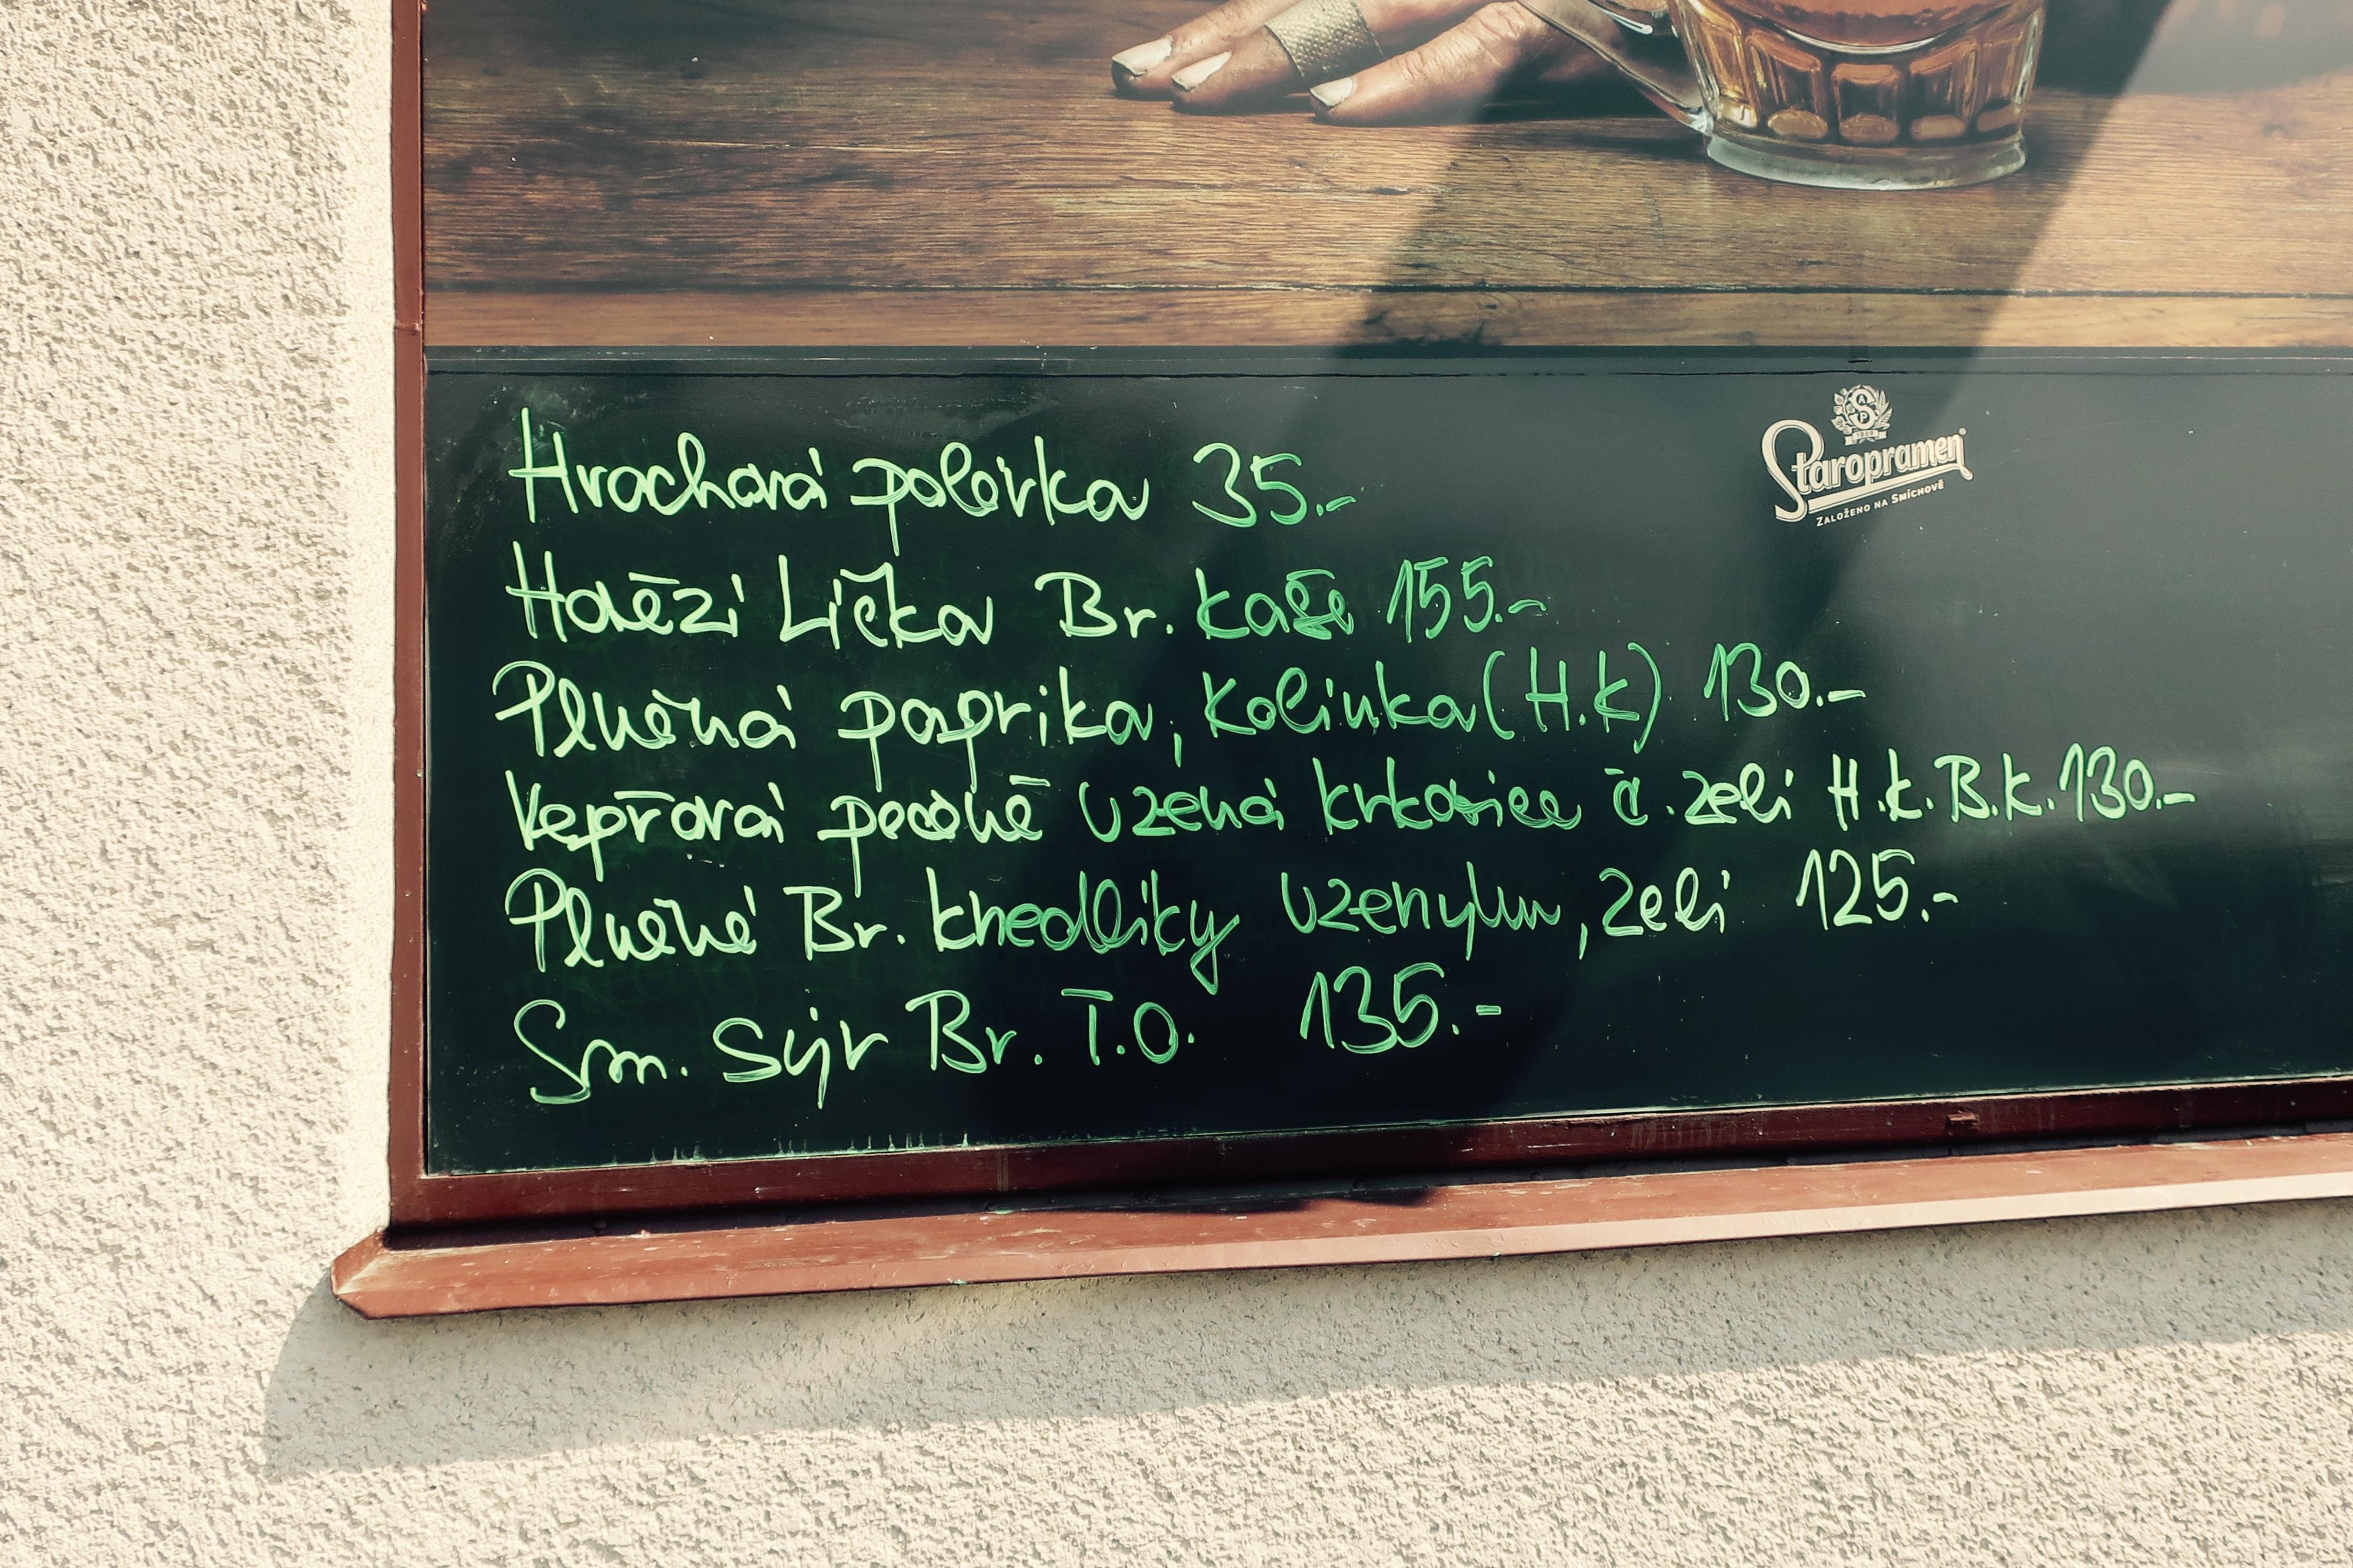 Staropramen
ZALOŽENO NA SMÍCHOVĚ
Hrachová polévka 35.-
Hovězí Líčka Br. kaše 155.-
Plněná paprika, Kolínka (H.k) 130.-
Vepřová pečeně uzená krkovice č. zelí H.k. B.k. 130.-
Plněné Br. knedlíky uzenym, zelí 125.-
Sm. Sýr Br. T.O. 135.-